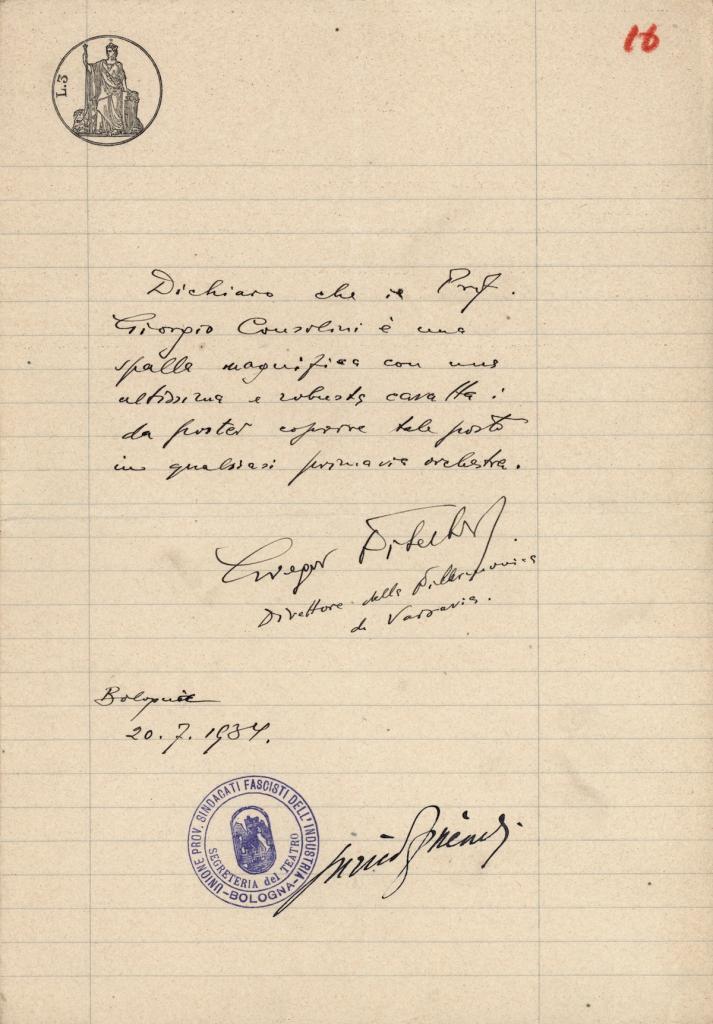 L.3
16
Dichiaro che il Prof.
Giorgio Consolini è una
spalla magnifica con una
altissima e robusta cavatta :
da poter coprire tale posto
in qualsiasi primaria orchestra.
Gregor Fitelberg
Direttore della Fillarmonica
di Varsavia.
Bologna
20. 7. 1934.
UNIONE PROV. SINDACATI FASCISTI DELL'INDUSTRIA
SEGRETERIA del TEATRO
-BOLOGNA-